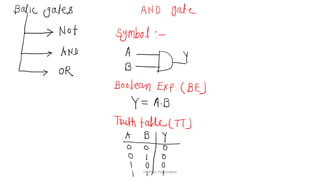 Basic gates
Not
AND
OR
AND gate
Symbol :-
A
B
Y
Boolean Exp (BE)
Y = A.B
Truth table (TT)
A B Y
0 0 0
0 1 0
1 0 0
1 1 1